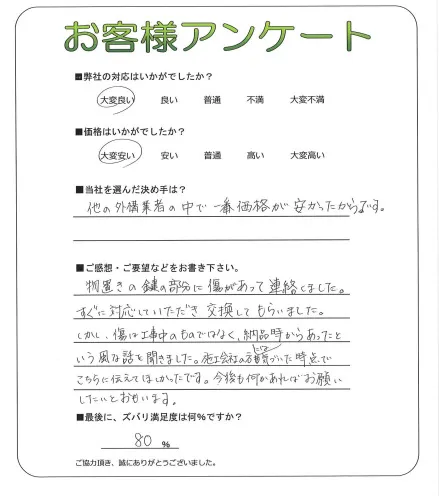 お客様アンケート
■弊社の対応はいかがでしたか?
大変良い 良い 普通 不満 大変不満
■価格はいかがでしたか?
大変安い 安い 普通 高い 大変高い
■当社を選んだ決め手は?
他の外構業者の中で一番価格が安かったからです。
■ご感想・ご要望などをお書き下さい。
物置きの鍵の部分に傷があって連絡しました。
すぐに対応していただき交換してもらいました。
しかし、傷は工事中のものではなく、納品時からあったと
いう風な話を聞きました。施工会社の方には気づいた時点で
こちらに伝えてほしかったです。今後も何かあればお願い
したいとおもいます。
■最後に、ズバリ満足度は何%ですか?
80 %
ご協力頂き、誠にありがとうございました。